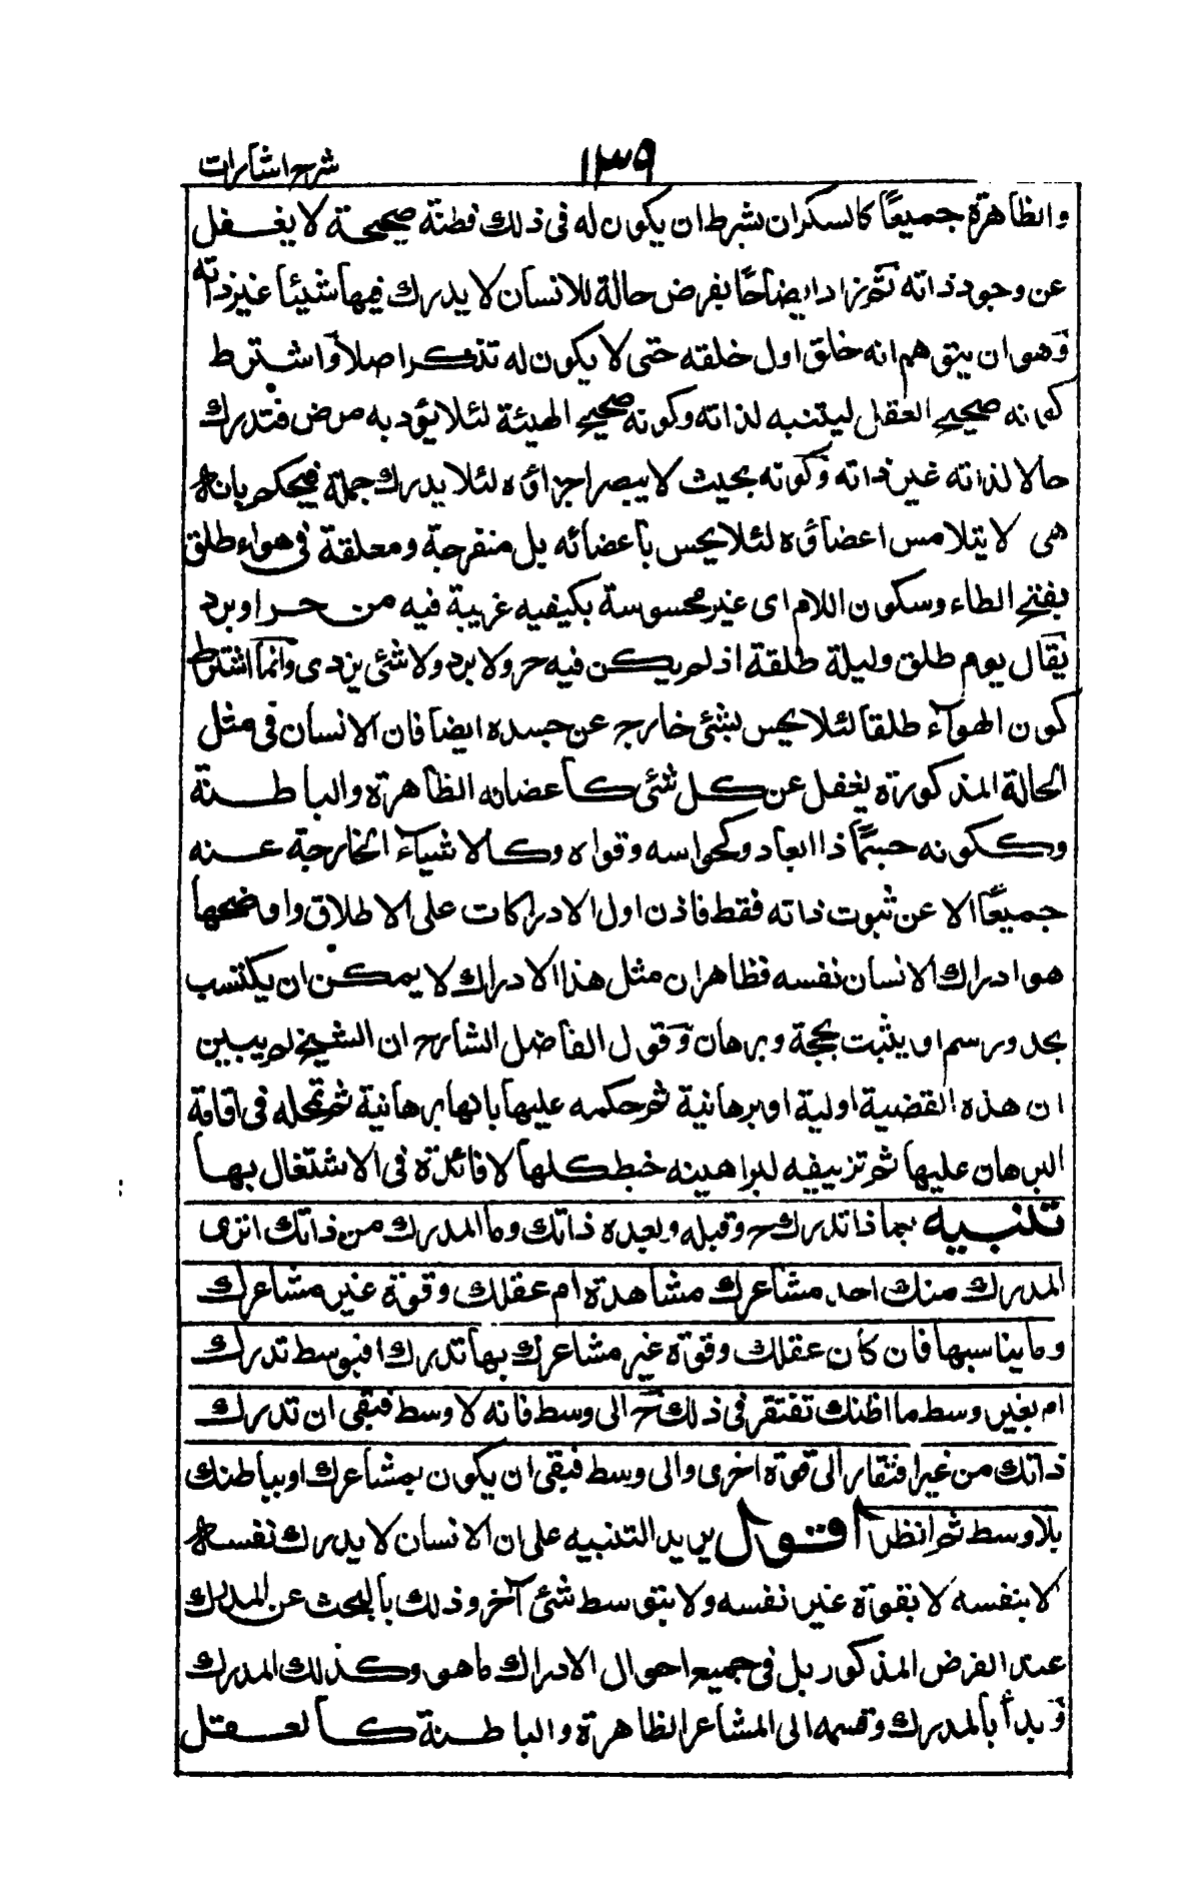 ١٣٩
شرح اشارات
والظاهرة جميعًا كالسكران بشرط ان يكون له فى ذلك فطنة صحيحة لا يغفل
عن وجود ذاته ثم زاد ايضاحًا بفرض حالة للانسان لا يدرك فيها شيئا غير ذاته
وهو ان يتوهم انه خلق اول خلقه حتى لا يكون له تذكر اصلا واشترط
كونه صحيح العقل ليتنبه لذاته وكونه صحيح الهيئة لئلا يؤذيه مرض فتدرك
حالا لذاته غير ذاته وكونه بحيث لا يبصر اجزاؤه لئلا يدرك جملة فيحكم بانه
هى لا يتلامس اعضاؤه لئلا يحس باعضائه بل منفرجة ومعلقة فى هواء طلق
بفتح الطاء وسكون اللام اى غير محسوسة بكيفيه غريبة فيه من حر او برد
يقال يوم طلق وليلة طلقة اذ لم يكن فيه حر ولا برد ولا شئ يزدى وانما اشترط
كون الهوآء طلقا لئلا يحس بشئ خارج عن جسده ايضا فان الانسان فى مثل
الحالة المذكورة يغفل عن كل شئ كاعضائه الظاهرة والباطنة
وككونه جسمًا ذا ابعاد وكحواسه وقواه وكالاشياء الخارجة عنه
جميعًا الا عن ثبوت ذاته فقط فاذن اول الادراكات على الاطلاق واوضحها
هو ادراك الانسان نفسه فظاهر ان مثل هذا الادراك لا يمكن ان يكتسب
بحد ورسم او يثبت بحجة وبرهان وقول الفاضل الشارح ان الشيخ لم يبين
ان هذه القضية اولية او برهانية ثم حكمه عليها بانها برهانية ثم تمحله فى اقامة
البرهان عليها ثم تزييفه لبراهينه خبط كلها لا فائدة فى الاشتغال بها
تنبيه بماذا تدرك ح وقبله وبعده ذاتك وما المدرك من ذاتك اترى
المدرك منك احد مشاعرك مشاهدة ام عقلك وقوة غير مشاعرك
وما يناسبها فان كان عقلك وقوة غير مشاعرك بها تدرك افبوسط تدرك
ام بغير وسط ما اظنك تفتقر فى ذلك ح الى وسط فانه لا وسط فبقى ان تدرك
ذاتك من غير افتقار الى قوة اخرى والى وسط فبقى ان يكون بمشاعرك او بباطنك
بلا وسط ثم انظر اقول يريد التنبيه على ان الانسان لا يدرك نفسه
الا بنفسه لا بقوة غير نفسه ولا بتوسط شئ آخر وذلك بالبحث عن المدرك
عند الفرض المذكور بل فى جميع احوال الادراك ما هو وكذلك المدرك
وبدأ بالمدرك وقسمه الى المشاعر الظاهرة والباطنة كالعقل